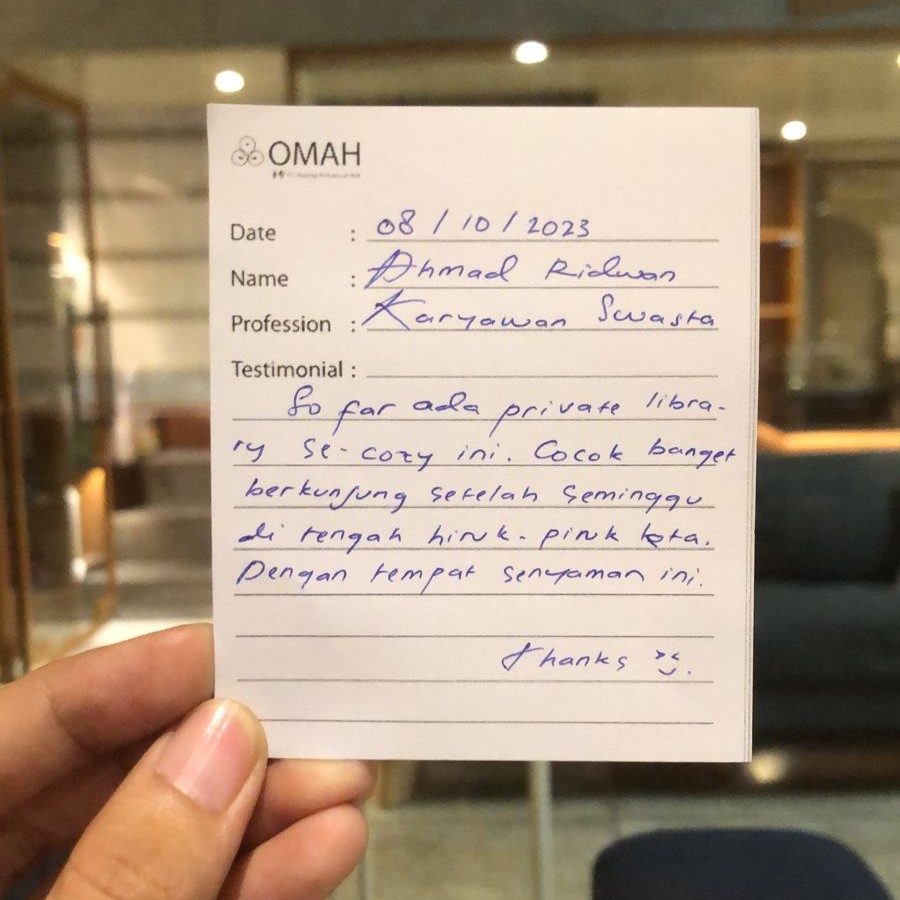 OMAH
Date : 08 / 10 / 2023
Name : Ahmad Ridwan
Profession : Karyawan Swasta
Testimonial :
So far ada private libra-
ry se-cozy ini. Cocok banget
berkunjung setelah seminggu
di tengah hiruk-pikuk kota.
Dengan tempat senyaman ini.
Thanks